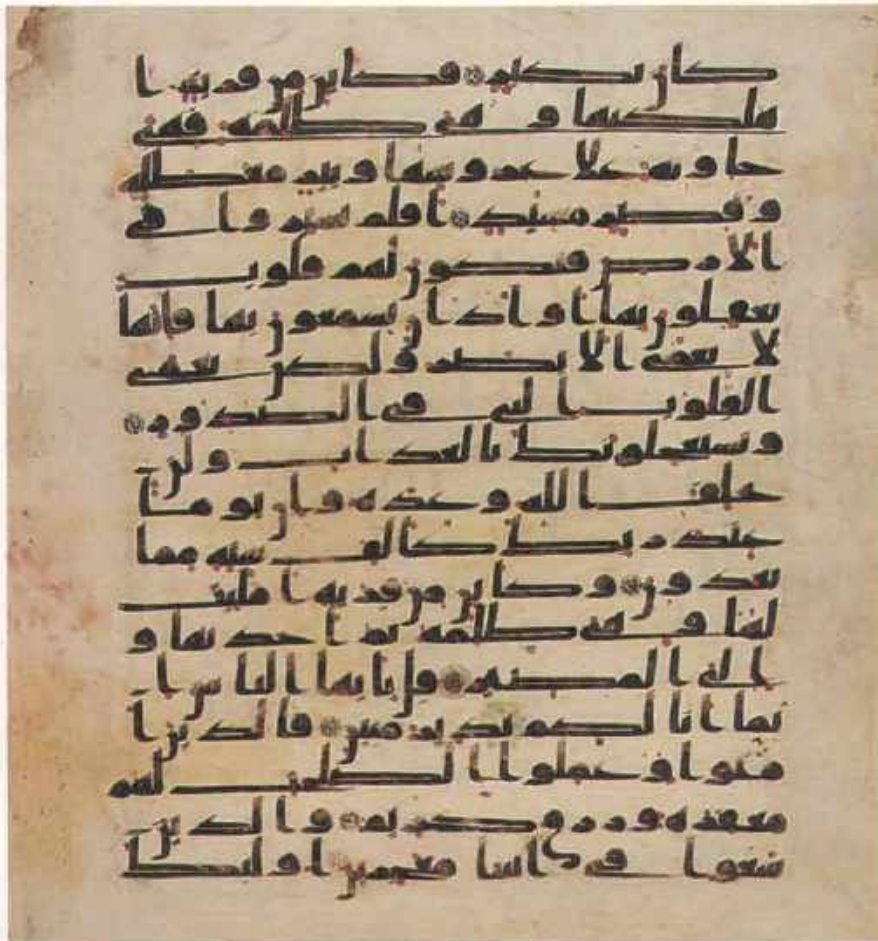 كان نكير فكاين من قرية ا
هلكنها و هي ظالمة فهي
خاوية على عروشها وبير معطلة
وقصر مشيد افلم يسيروا في
الارض فتكون لهم قلوب
يعقلون بها او اذان يسمعون بها فانها
لا تعمى الابصر ولكن تعمى
القلوب التي في الصدور
ويستعجلونك بالعذاب ولن
يخلف الله وعده وان يوما
عند ربك كالف سنه مما
تعدون وكاين من قرية امليت
لها وهي ظالمة ثم اخذتها و
الي المصير قل يايها الناس ا
نما انا لكم نذير مبين فالذين ا
منوا وعملوا الصلحت لهم
مغفرة ورزق كريم والذين
سعوا في اياتنا معجزين اوليك